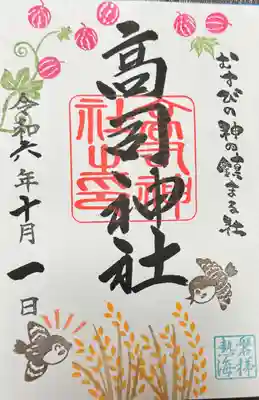 むすびの神の鎮まる社
高司神社
令和六年十月一日
磐梯
熱海